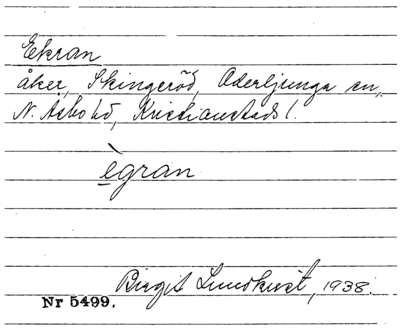 Ekran
åker, Skingeröd, Oderljunga sn,
N. Åsbo hd, Kristianstads l.
ègran
Birgit Lundkvist, 1938.
Nr 5499.